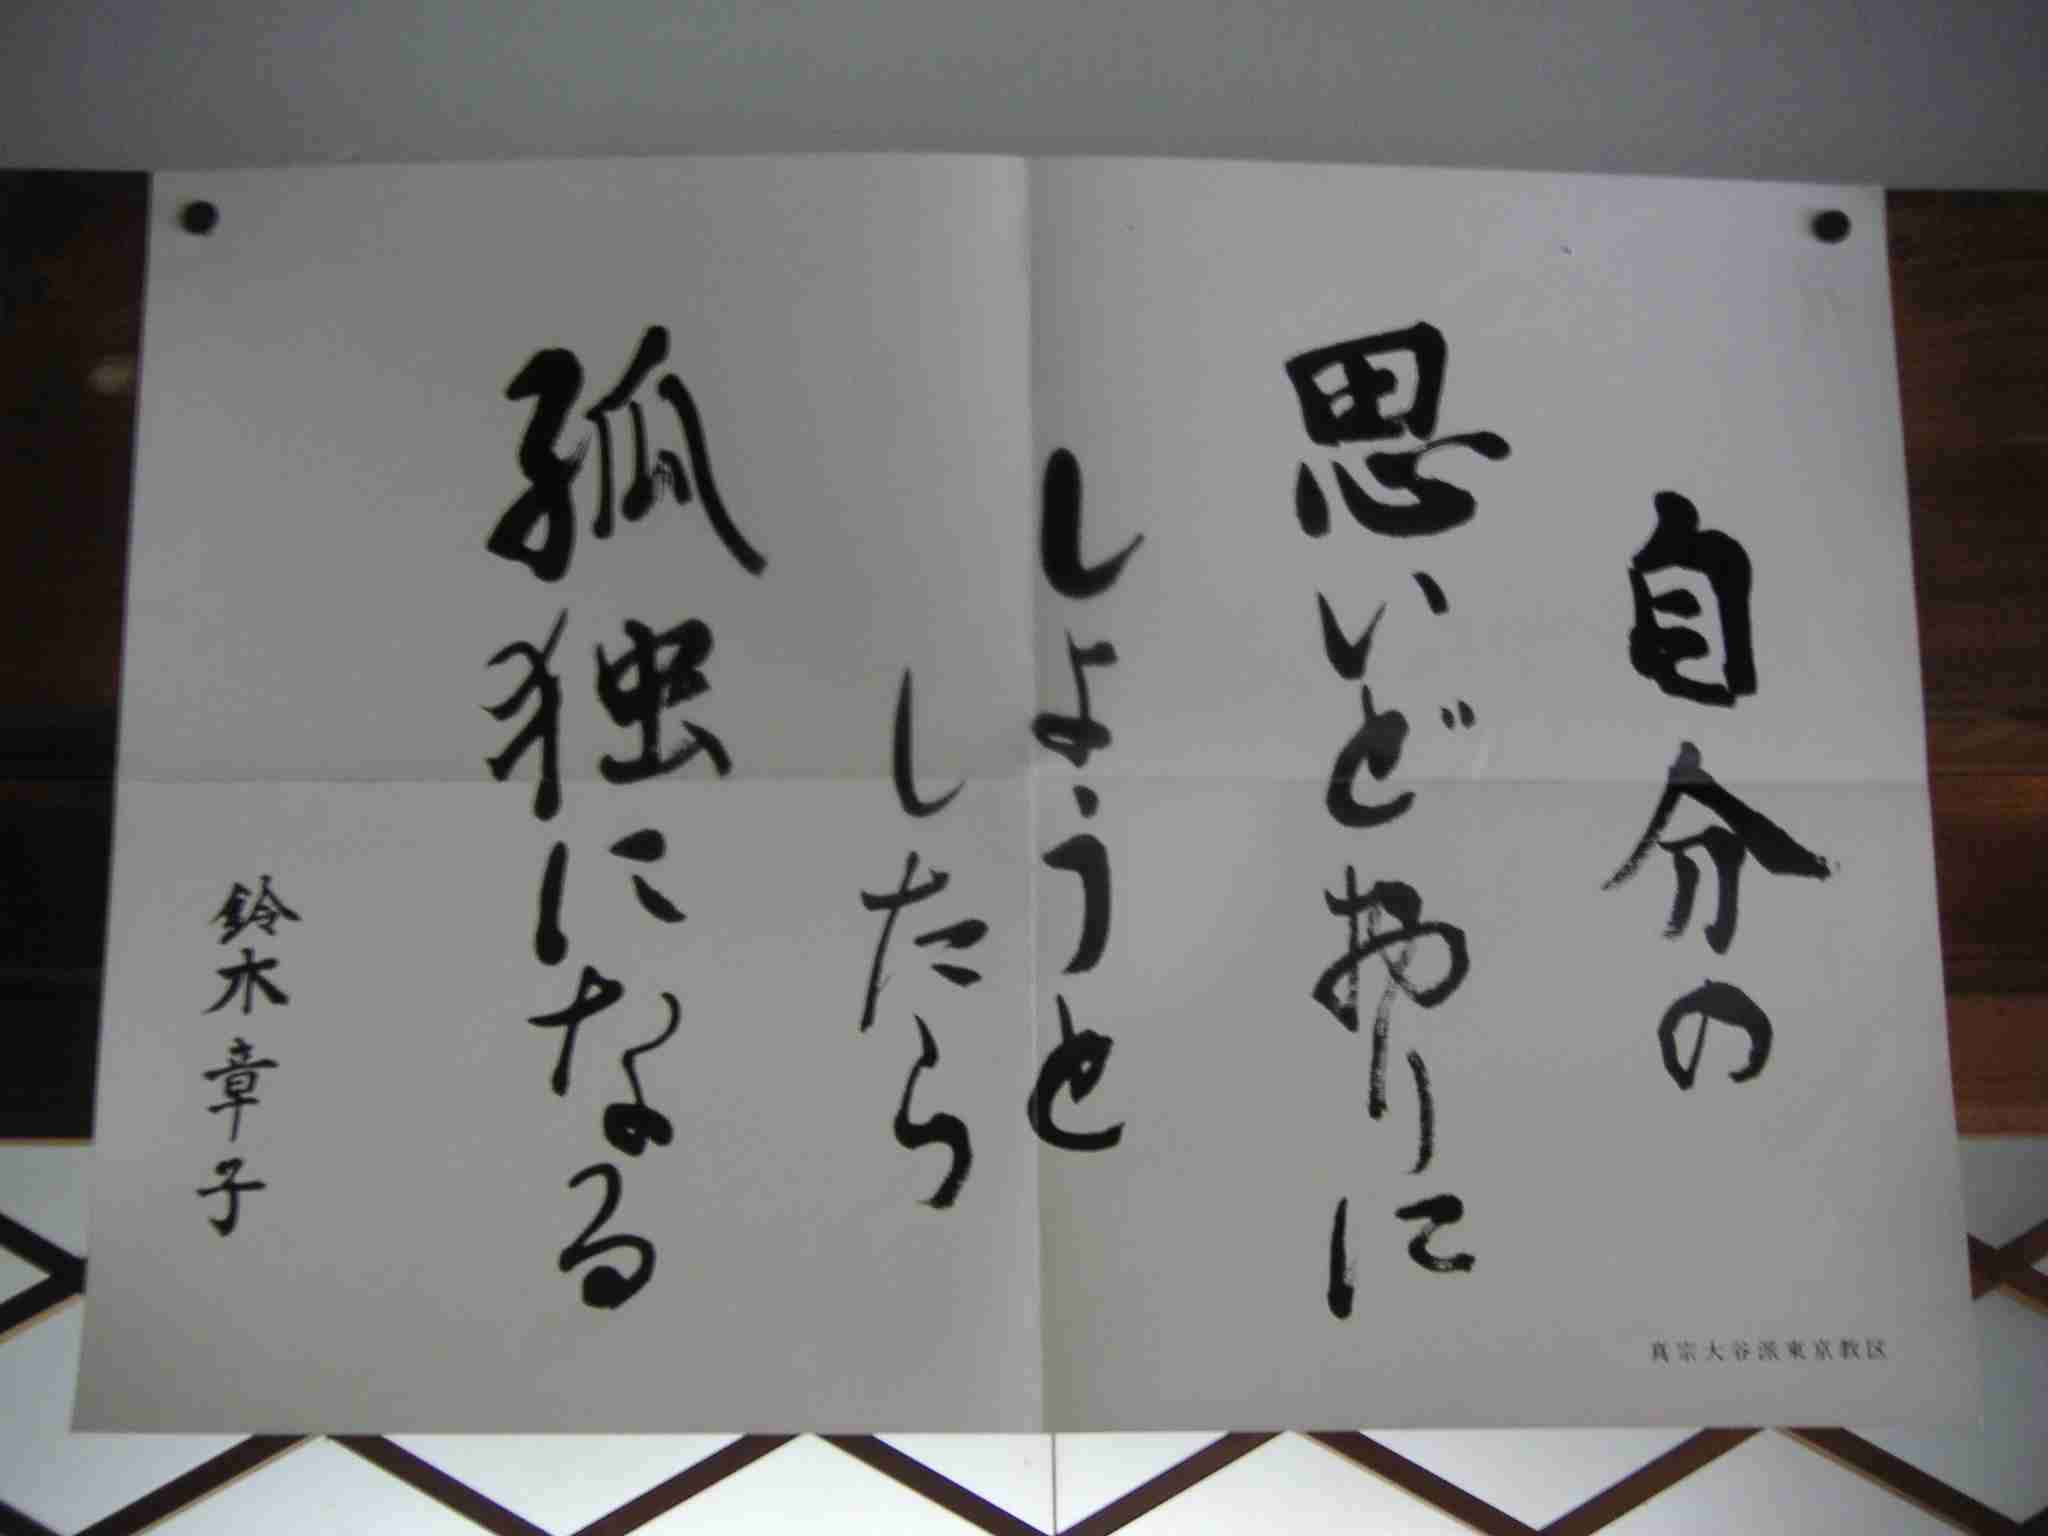 自分の
思いどおりに
しようと
したら
孤独になる
鈴木章子
真宗大谷派東京教区